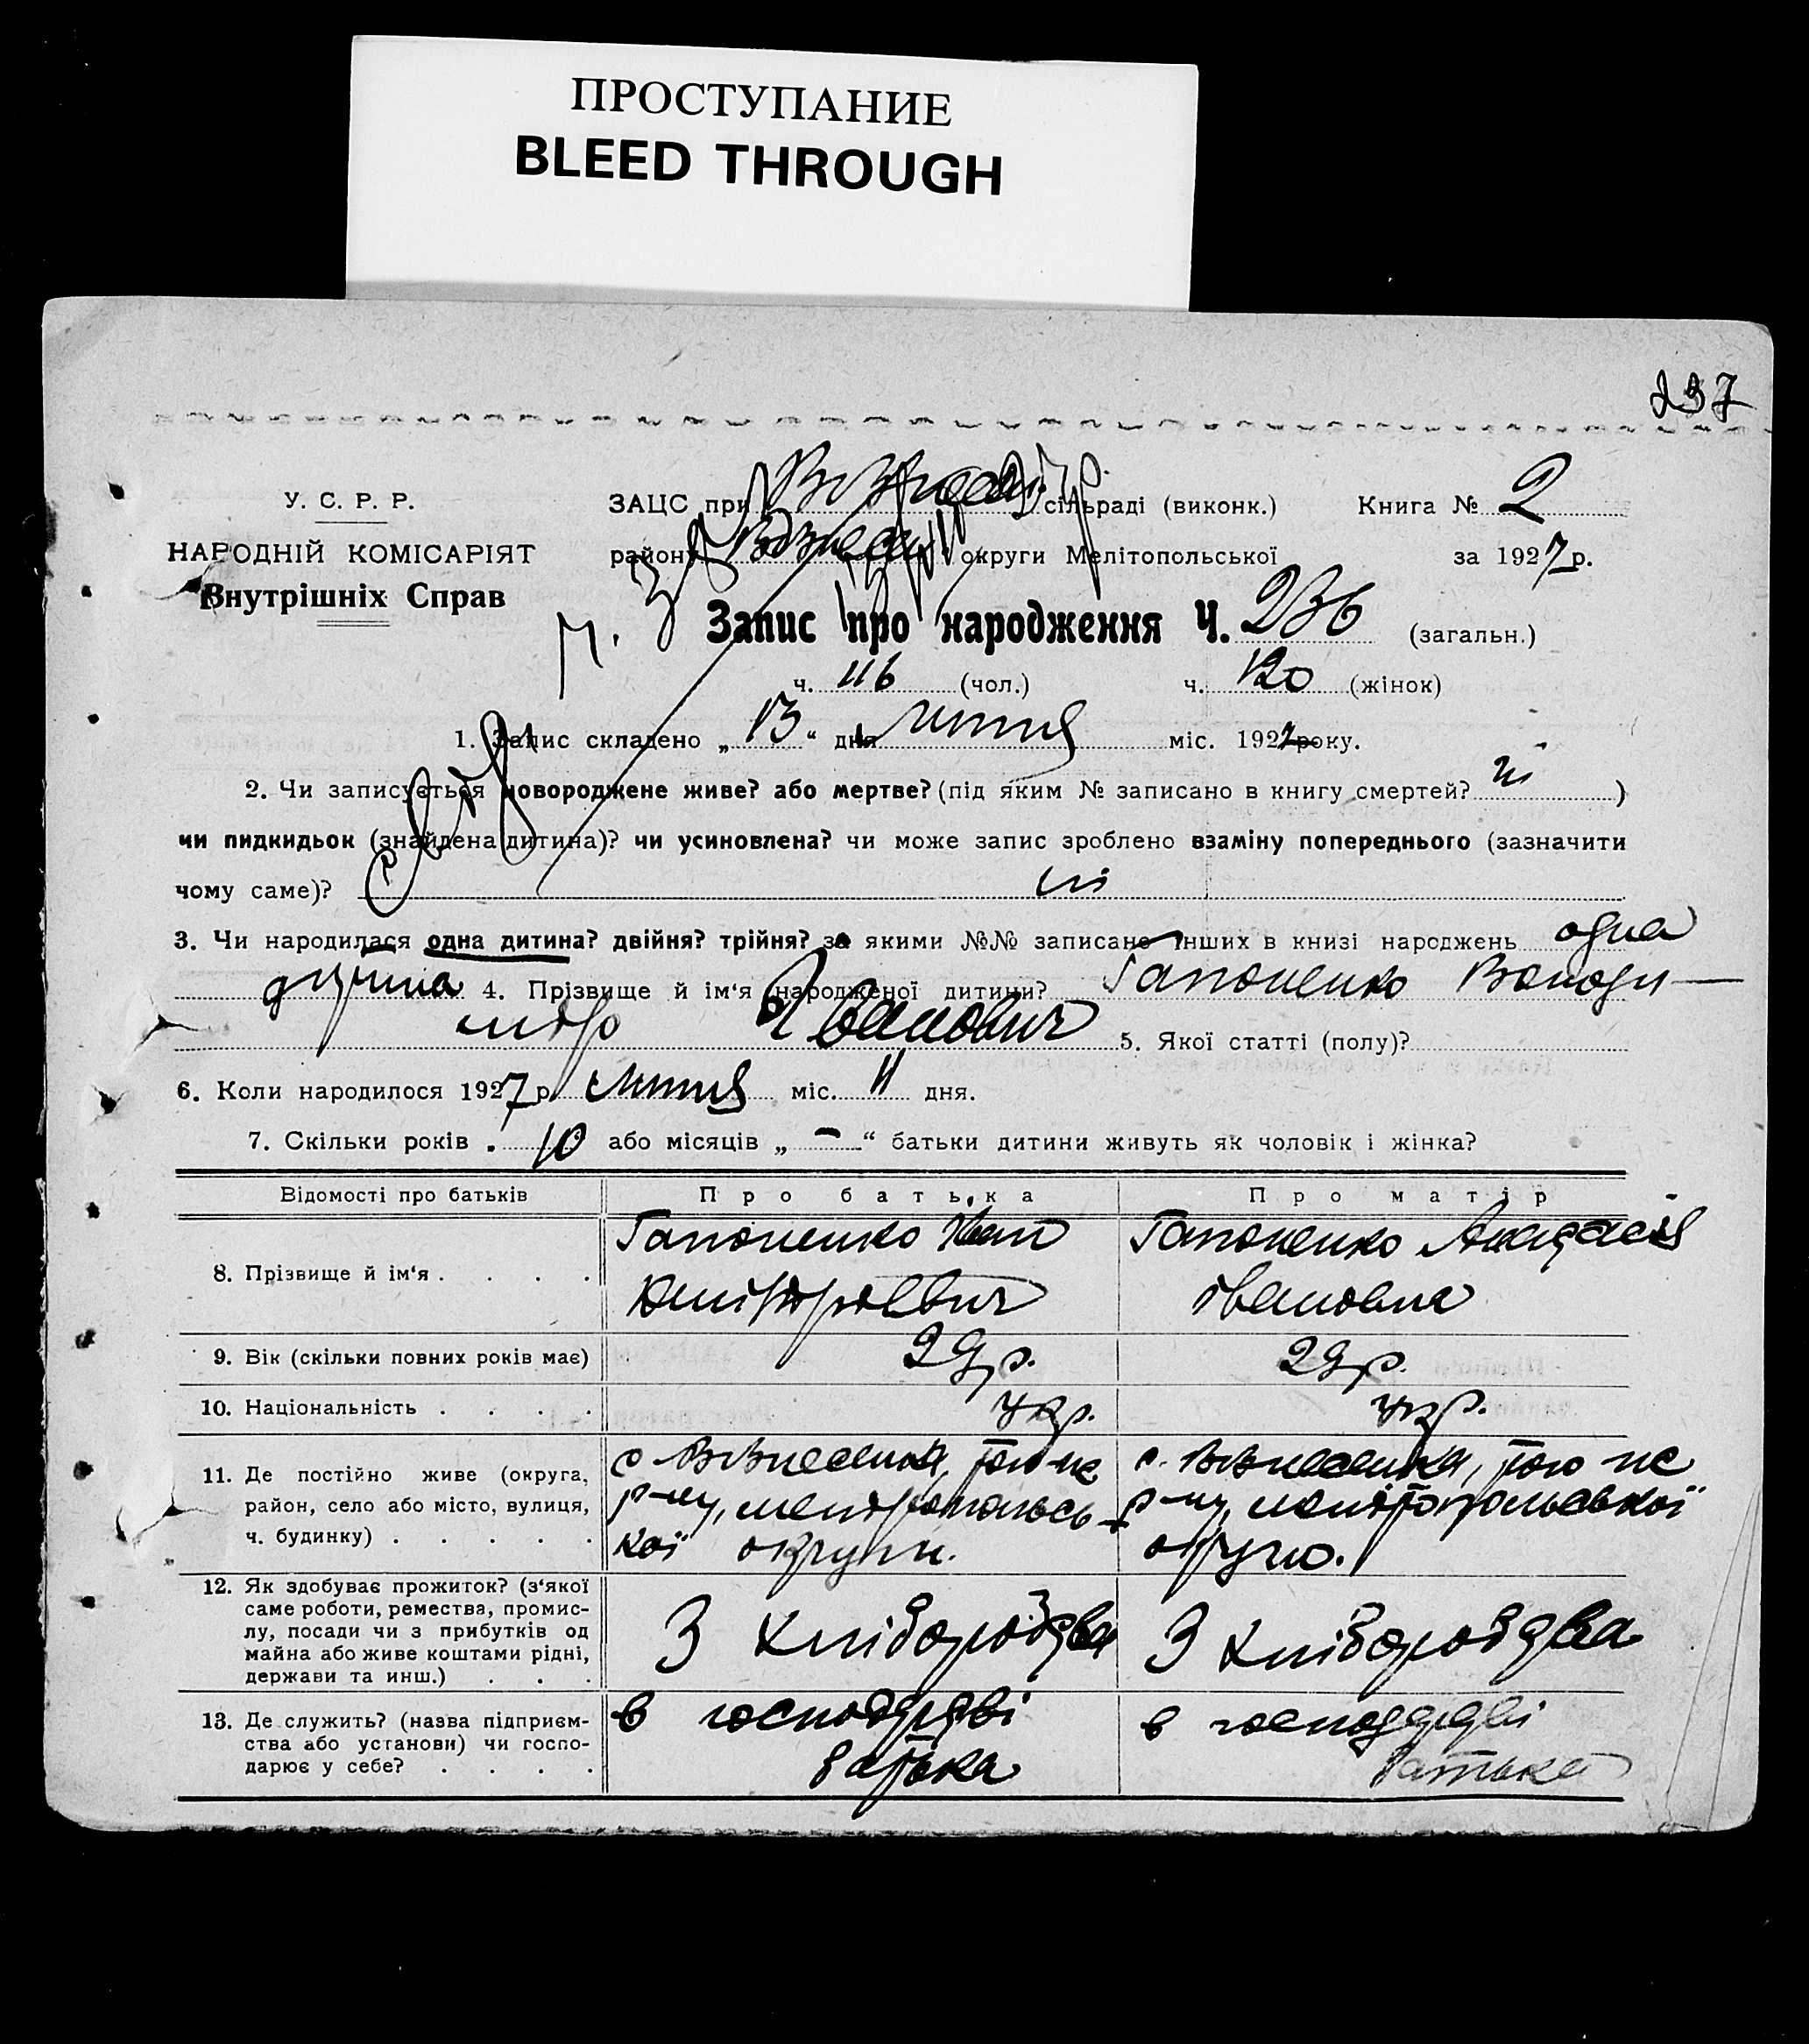 ПРОСТУПАНИЕ
BLEED THROUGH
237
У. С. Р. Р.
НАРОДНІЙ КОМІСАРІЯТ
Внутрішніх Справ
ЗАЦС при сільраді (виконк.) Книга № 2
району округи Мелітопольської за 1927 р.
Запис про народження Ч. 236 (загальн.)
ч. 116 (чол.) ч. 120 (жінок)
1. Запис складено „ 13 “ дня липня міс. 1927 року.
2. Чи записується новороджене живе? або мертве? (під яким № записано в книгу смертей? ні )
чи пидкидьок (знайдена дитина)? чи усиновлена? чи може запис зроблено взаміну попереднього (зазначити
чому саме)? ні
3. Чи народилася одна дитина? двійня? трійня? за якими №№ записано інших в книзі народжень одна
дитина 4. Прізвище й ім‘я народженої дитини? Гапоненко Володи-
мір Іванович 5. Якої статті (полу)?
6. Коли народилося 1927 р. липня міс. 11 дня.
7. Скільки років „ 10 або місяців „ — “ батьки дитини живуть як чоловік і жінка?
Відомості про батьків Про батька Про матір
8. Прізвище й ім‘я . . . . Гапоненко Іван Гапоненко
Івановна
9. Вік (скільки повних років має) 29 р. 29 р.
10. Національність . . . . укр. укр.
11. Де постійно живе (округа, район, село або місто, вулиця, ч. будинку) . . . . . с Вознесенка, того-же р-ну, мелітопольської округи. с. Вознесенка, того же р-ну, мелітопольської
12. Як здобуває прожиток? (з‘якої саме роботи, ремества, промислу, посади чи з прибутків од майна або живе коштами рідні, держави та инш.) . . . З хліборобдва З хліборобдва
13. Де служить? (назва підприємства або установи) чи господарює у себе? . . . . в батька в батька